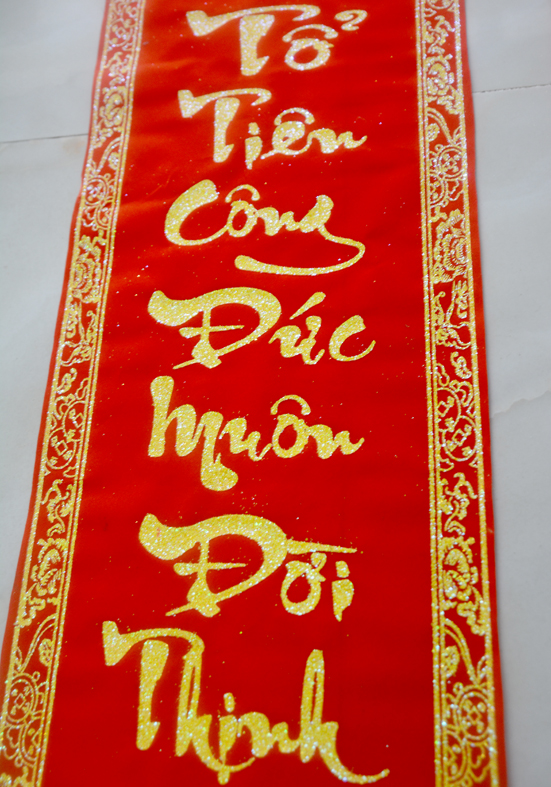 Tổ
Tiên
Công
Đức
Muôn
Đời
Thịnh